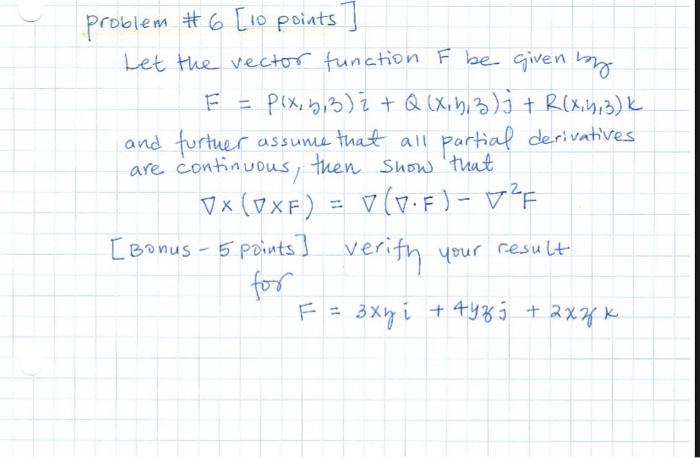 Problem # 6 [10 points]
Let the vector function F be given by
F = P(x,y,z)i + Q(x,y,z)j + R(x,y,z)k
and further assume that all partial derivatives
are continuous, then show that
∇x(∇xF) = ∇(∇·F) - ∇²F
[Bonus - 5 points] verify your result
for
F = 3xy i + 4yz j + 2xz k